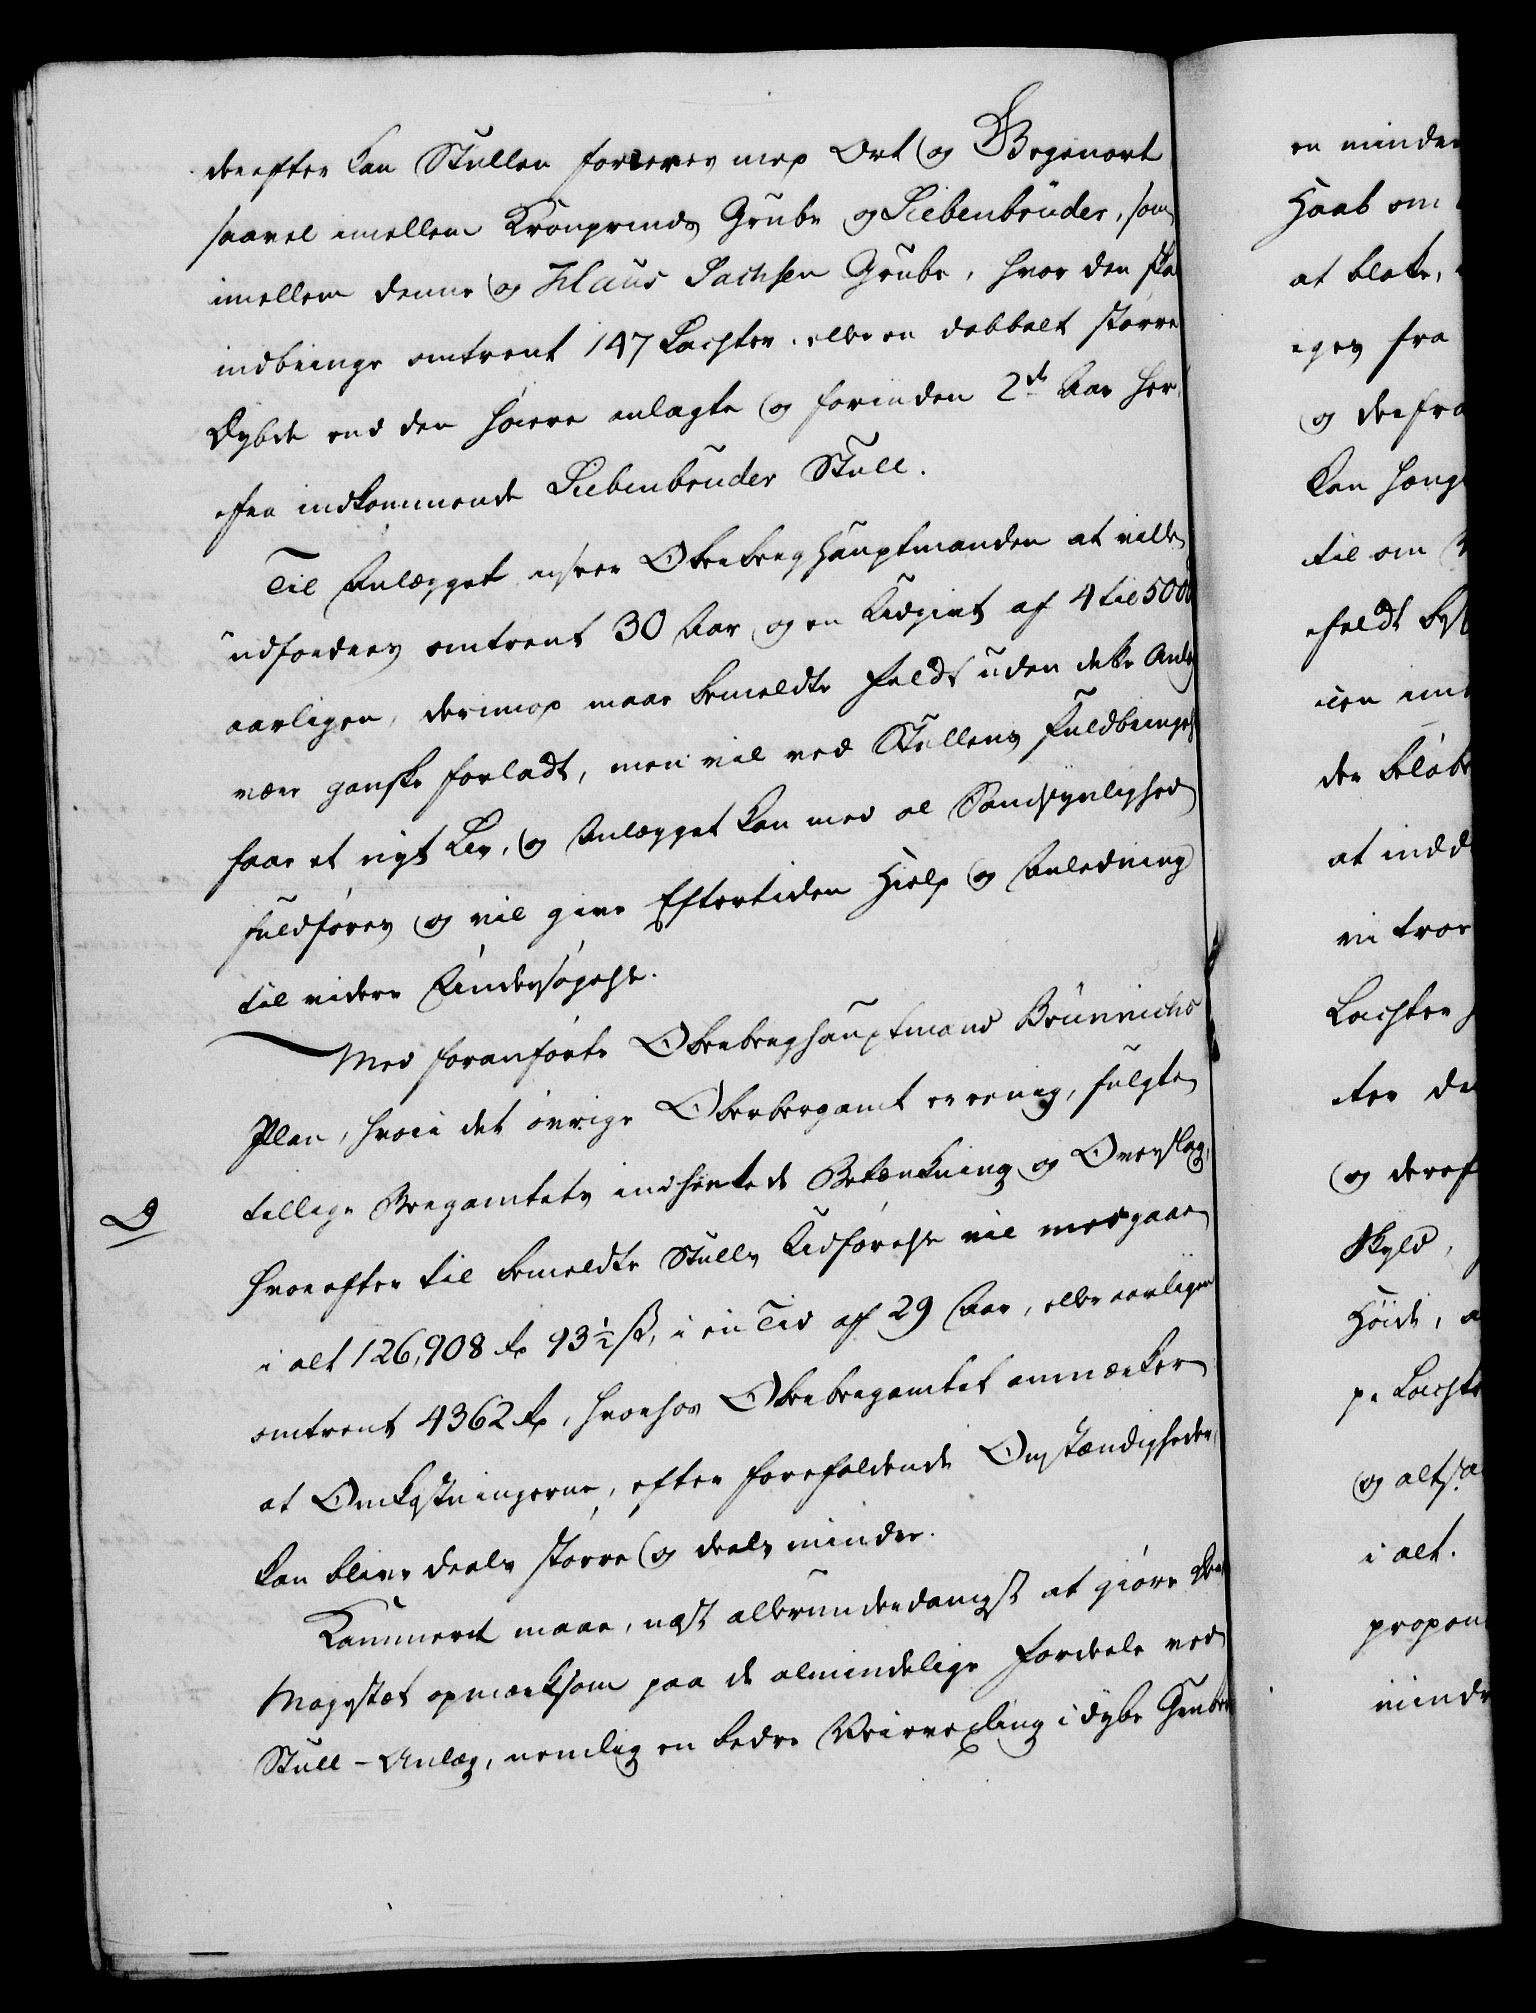 derefter kan Stollen forceres med Ort og Gegenort
saavel imellem Kronprinds Grube og Siebenbrüder, som
imellem denne og Klaus Sachsen Grube, hvor den skal
indbringe omtrent 147 Lachter, eller en dobbelt større
Dybde end den høiere anlagte og forinden 2de Aar her-
fra indkommende Siebenbrüder Stoll.
Til Anlægget anseer Oberberghauptmanden at ville
udfordres omtrent 30 Aar og en Udgivt af 4 til 5000
aarligen, derimod maae bemeldte Feldt uden dette Anlæg
være ganske forladt, men vil ved Stollens Fuldbringelse
faae et nyt Liv, og Anlægget kan med al Sandsynlighed
fuldføres og vil give Eftertiden Hielp og Anledning
til videre Undersøgelse.
Med foranførte Oberberghauptmand Brünnichs
Plan, hvori det øvrige Oberbergamt er eenig, fulgte
tillige Bergamtets indhentede Betænkning og Overslag,
D
hvorefter til bemeldte Stolls Udførelse vil medgaae
i alt 126,908 rd 93½ s, i en Tid af 29 Aar, eller aarligen
omtrent 4362 rd, hvorhos Oberbergamtet anmærker
at Omkostningerne, efter forefaldende Omstændigheder
kan blive deels større og deels mindre.
Kammeret maae, næst allerunderdanigst at giøre Deres
Majestæt opmærksom paa de almindelige Fordeele ved
Stoll-Anlæg, nemlig en bedre Veirvexling i dybe Gruber
en mindre
Haab om
at bløte,
eges fra
og derfra
kan
til om
feldt
den
der beløbe
at indd
vi troe
Lachter
ter de
og deref
Skyld,
Høide, a
pr Lachte
og altsaa
i alt.
propon
mindr